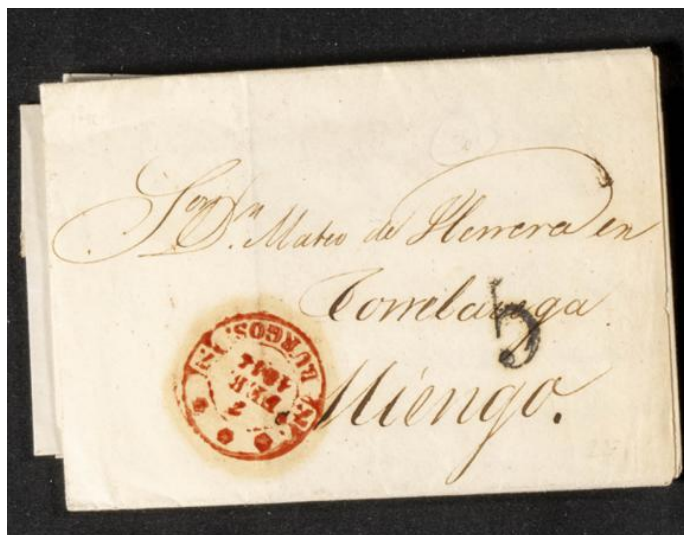 Sor Dn. Mateo de Herrera en
Torrelavega
Miengo.
BURGOS
2
FEB
5